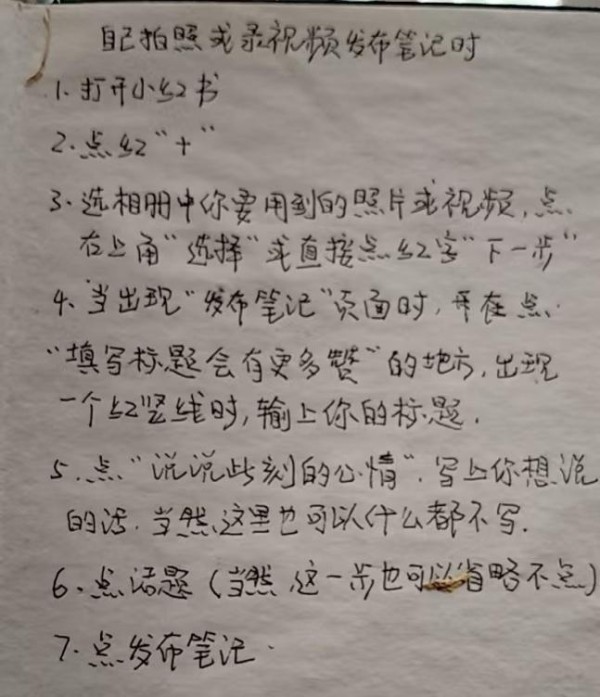 自己拍照或录视频发布笔记时
1、打开小红书
2、点红“+”
3、选相册中你要用到的照片或视频,点
右上角“选择”或直接点红字“下一步”
4、当出现“发布笔记”页面时,再在点
“填写标题会有更多赞”的地方,出现
一个红竖线时,输上你的标题.
5、点“说说此刻的心情”.写上你想说
的话.当然这里也可以什么都不写.
6、点话题(当然这一步也可以省略不点)
7、点发布笔记.